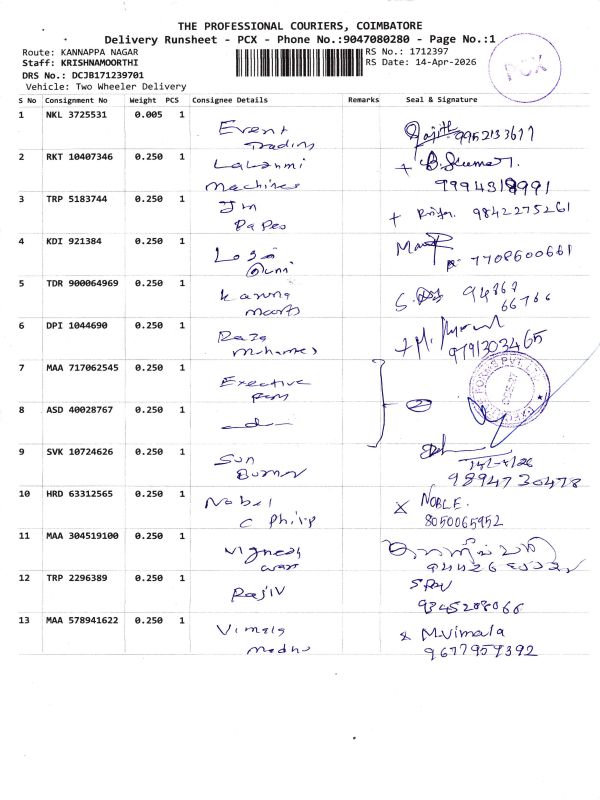 THE PROFESSIONAL COURIERS, COIMBATORE
Delivery Runsheet - PCX - Phone No.:9047080280 - Page No.:1
Route: KANNAPPA NAGAR
RS No.: 1712397
Staff: KRISHNAMOORTHI
RS Date: 14-Apr-2026
DRS No.: DCJB171239701
Vehicle: Two Wheeler Delivery
PCX
S No Consignment No Weight PCS Consignee Details Remarks Seal & Signature
1 NKL 3725531 0.005 1 Event
Trading
2 RKT 10407346 0.250 1 Lakshmi B. Kumar.
Machines 9994318991
3 TRP 5183744 0.250 1 Jm
Papes 9842275261
4 KDI 921384 0.250 1
7708600661
5 TDR 900064969 0.250 1 Karuna
94767
66766
6 DPI 1044690 0.250 1 Raja
9791303465
7 MAA 717062545 0.250 1 Exective
2
8 ASD 40028767 0.250 1
9 SVK 10724626 0.250 1 Sun
Burner 9894730478
10 HRD 63312565 0.250 1 Nobel NOBLE.
C Philip 8050065952
11 MAA 304519100 0.250 1 Vignesh
12 TRP 2296389 0.250 1 Rajiv
9345208066
13 MAA 578941622 0.250 1 Vimala M.Vimala
Madhu 9677959392